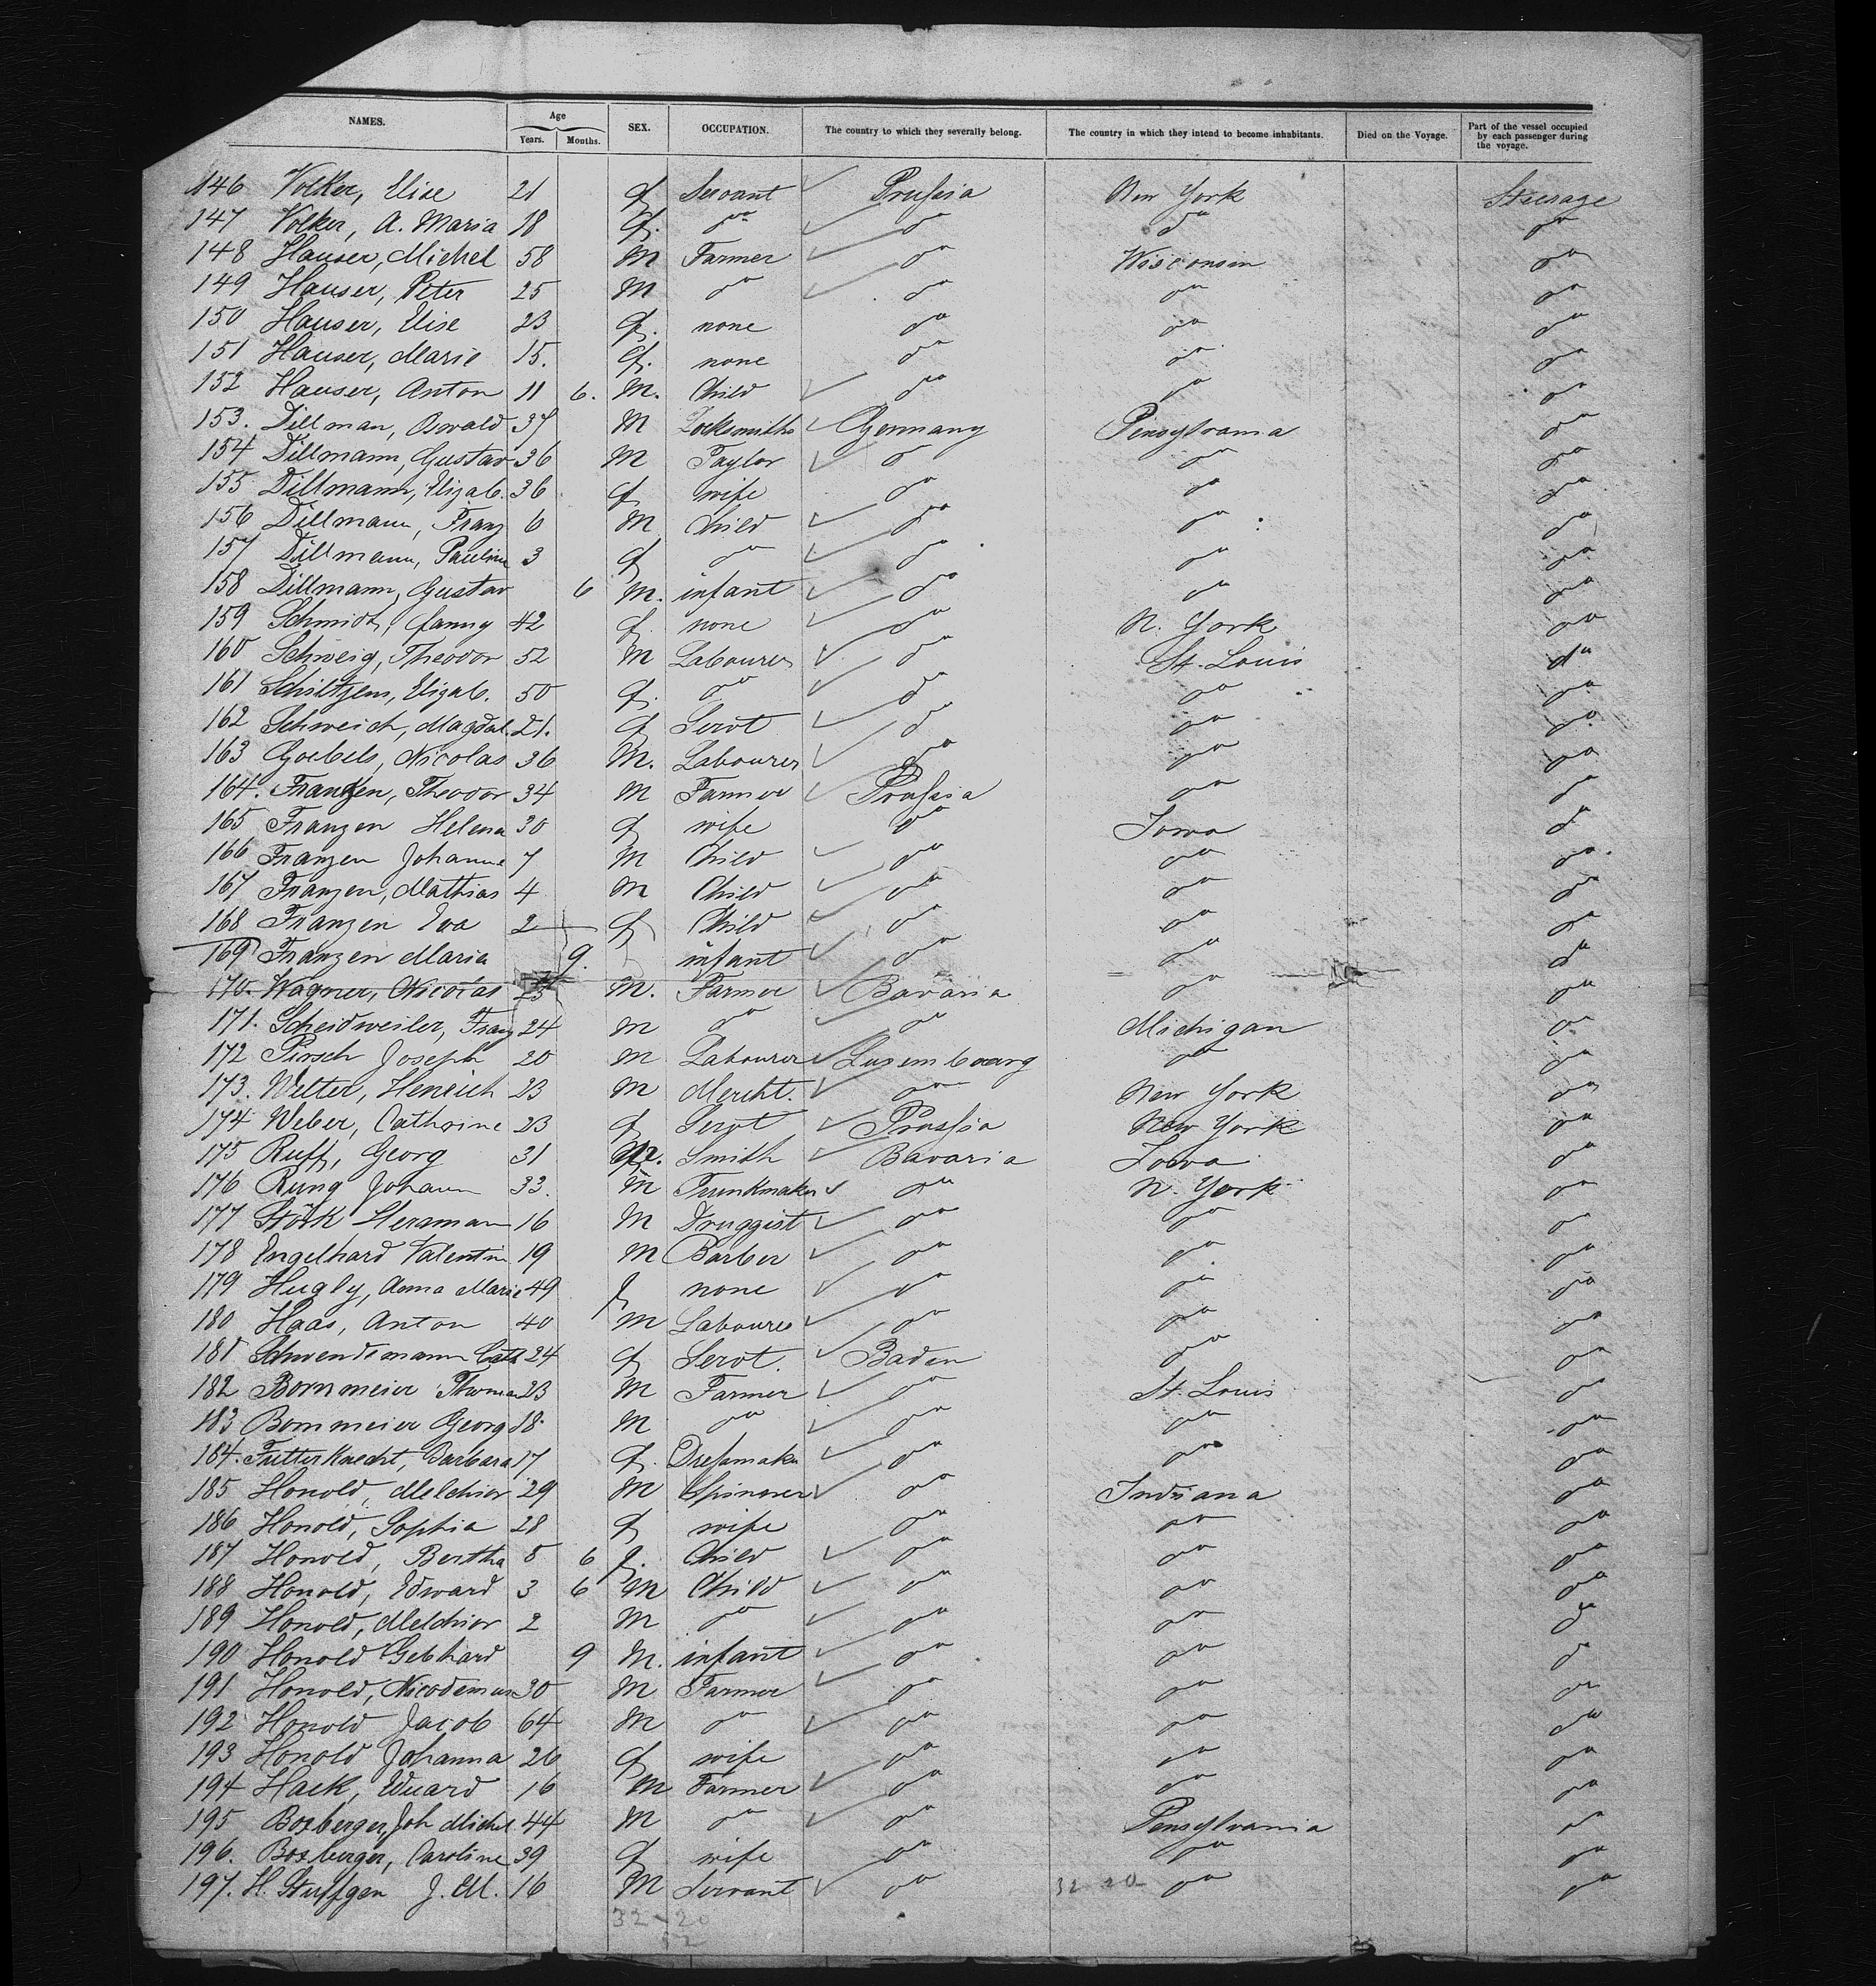 NAMES. Age Years. Months. SEX. OCCUPATION. The country to which they severally belong. The country in which they intend to become inhabitants. Died on the Voyage. Part of the vessel occupied by each passenger during the voyage.
146 Volker, Elise 21 f Servant Prussia New York Steerage
147 Volker, A. Maria 18 f. do do do do
148 Hauser, Michel 58 M Farmer do Wisconsin do
149 Hauser, Peter 25 M do do do do
150 Hauser, Elise 23 f. none do do do
151 Hauser, Marie 15. f. none do do do
152 Hauser, Anton 11 6. M. Child do do do
153. Dillman, Oswald 37 M Locksmiths Germany Pensylvania do
154 Dillmann, Gustav 36 M Taylor do do do
155 Dillmann, Elizab. 36 f wife do do do
156 Dillmann, Franz 6 M Child do do do
157 Dillmann, Pauline 3 f do do do do
158 Dillmann, Gustav 6 M. infant do do do
159 Schmidt, fanny 42 f. none do N. York do
160 Schweig, Theodor 52 M Labourer do St. Louis do
161 Schiltzem, Elizab. 50 f. do do do do
162 Schweich, Magdal. 21. f Servt do do do
163 Goebels, Nicolas 36 M. Labourer do do do
164. Franzen, Theodor 34 M Farmer Prussia do do
165 Franzen Helena 30 f wife do Iowa do
166 Franzen Johanne 7 M Child do do do
167 Franzen, Mathias 4 M Child do do do
168 Franzen Eva 2 f Child do do do
169 Franzen Maria 9. infant do do do
170. Wagner, Nicolas 25 M. Farmer Bavaria do do
171. Scheidweiler, Franz 24 M do do Michigan do
172 Pirsch Joseph 20 M Labourer Luxembourg do do
173. Welter, Henrich 23 M Mercht. do New York do
174 Weber, Cathrine 23 f Servt Prussia New York do
175 Ruff, Georg 31 M. Smith Bavaria Iowa do
176 Rung Johann 33. M Trunkmaker do N. York do
177 Störk Herrman 16 M Druggist do do do
178 Engelhard Valentin 19 M Barber do do do
179 Hugly, Anna Marie 49 f none do do do
180 Haas, Anton 40 M Labourer do do do
181 Schwendemann Cath 24 f Servt. Baden do do
182 Bornmeier Thomas 23 M Farmer do St. Louis do
183 Bornmeier Georg 18. M do do do do
184. Futterknecht, Barbara 17 f. Dressmaker do do do
185 Honold, Melchior 29 M Spinner do Indiana do
186 Honold, Sophia 28 f wife do do do
187 Honold, Bertha 5 6 f. Child do do do
188 Honold, Edward 3 6 M Child do do do
189 Honold, Melchior 2 M do do do do
190 Honold Gebhard 9 M. infant do do do
191 Honold, Nicodemus 30 M Farmer do do do
192 Honold Jacob 64 M do do do do
193 Honold Johanna 26 f wife do do do
194 Hack, Eduard 16 M Farmer do do do
195 Boxberger, Joh Michel 44 M do do Pensylvania do
196. Boxberger, Caroline 39 f wife do do do
197. H. J. M. 16 M Servant do 32 20 do do
32-20
52